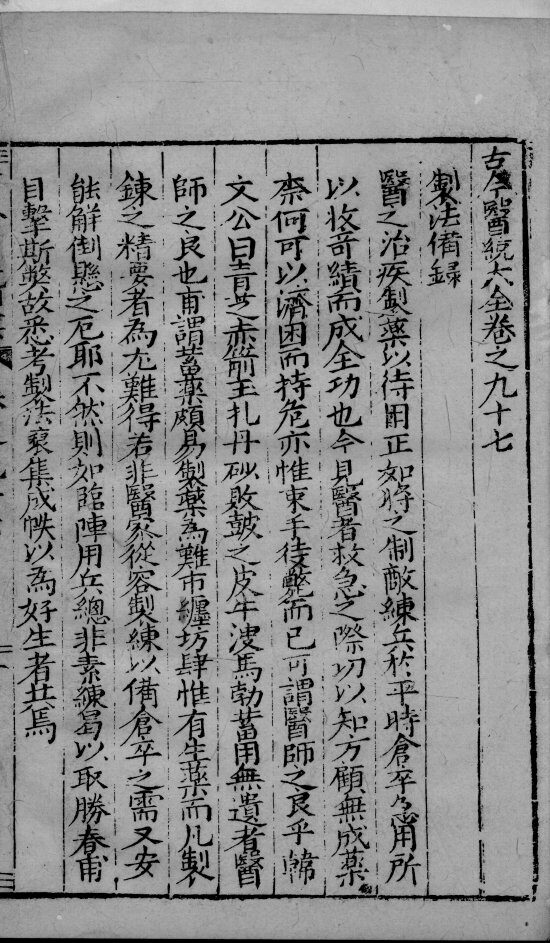 古今醫統大全卷之九十七
製法備録
醫之治疾製藥以待用正如將之制敵練兵於平時倉卒為用所
以收奇績而成全功也今見醫者救急之際切以知方顧無成藥
柰何可以濟困而持危亦惟束手待斃而已可謂醫師之良乎韓
文公曰青芝赤箭玉札丹砂敗鼓之皮牛溲馬勃蓄用無遺者醫
師之良也甫謂蓄藥頗易製藥為難市纏坊肆惟有生藥而凡製
鍊之精要者為尤難得若非醫家從容製練以備倉卒之需又安
能解倒懸之厄耶不然則如臨陣用兵總非素練曷以取勝春甫
目擊斯弊故悉考製法裒集成帙以為好生者共焉